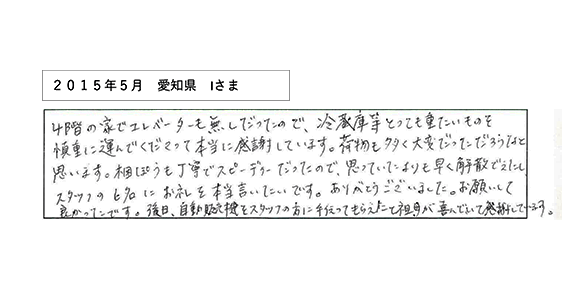 ２０１５年５月　愛知県　Iさま
4階の家でエレベーターも無しだったので、冷蔵庫等とっても重たいものを
慎重に運んでくださって本当に感謝しています。荷物も多く大変だっただろうなと
思います。梱ぽうも丁寧でスピーディーだったので、思っていたよりも早く解散でき
スタッフの6名にお礼を本当言いたいです。ありがとうございました。お願いして
良かったです。後日、自動販売機をスタッフの方に手伝ってもらえたこと祖母が喜んでいて感謝しています。